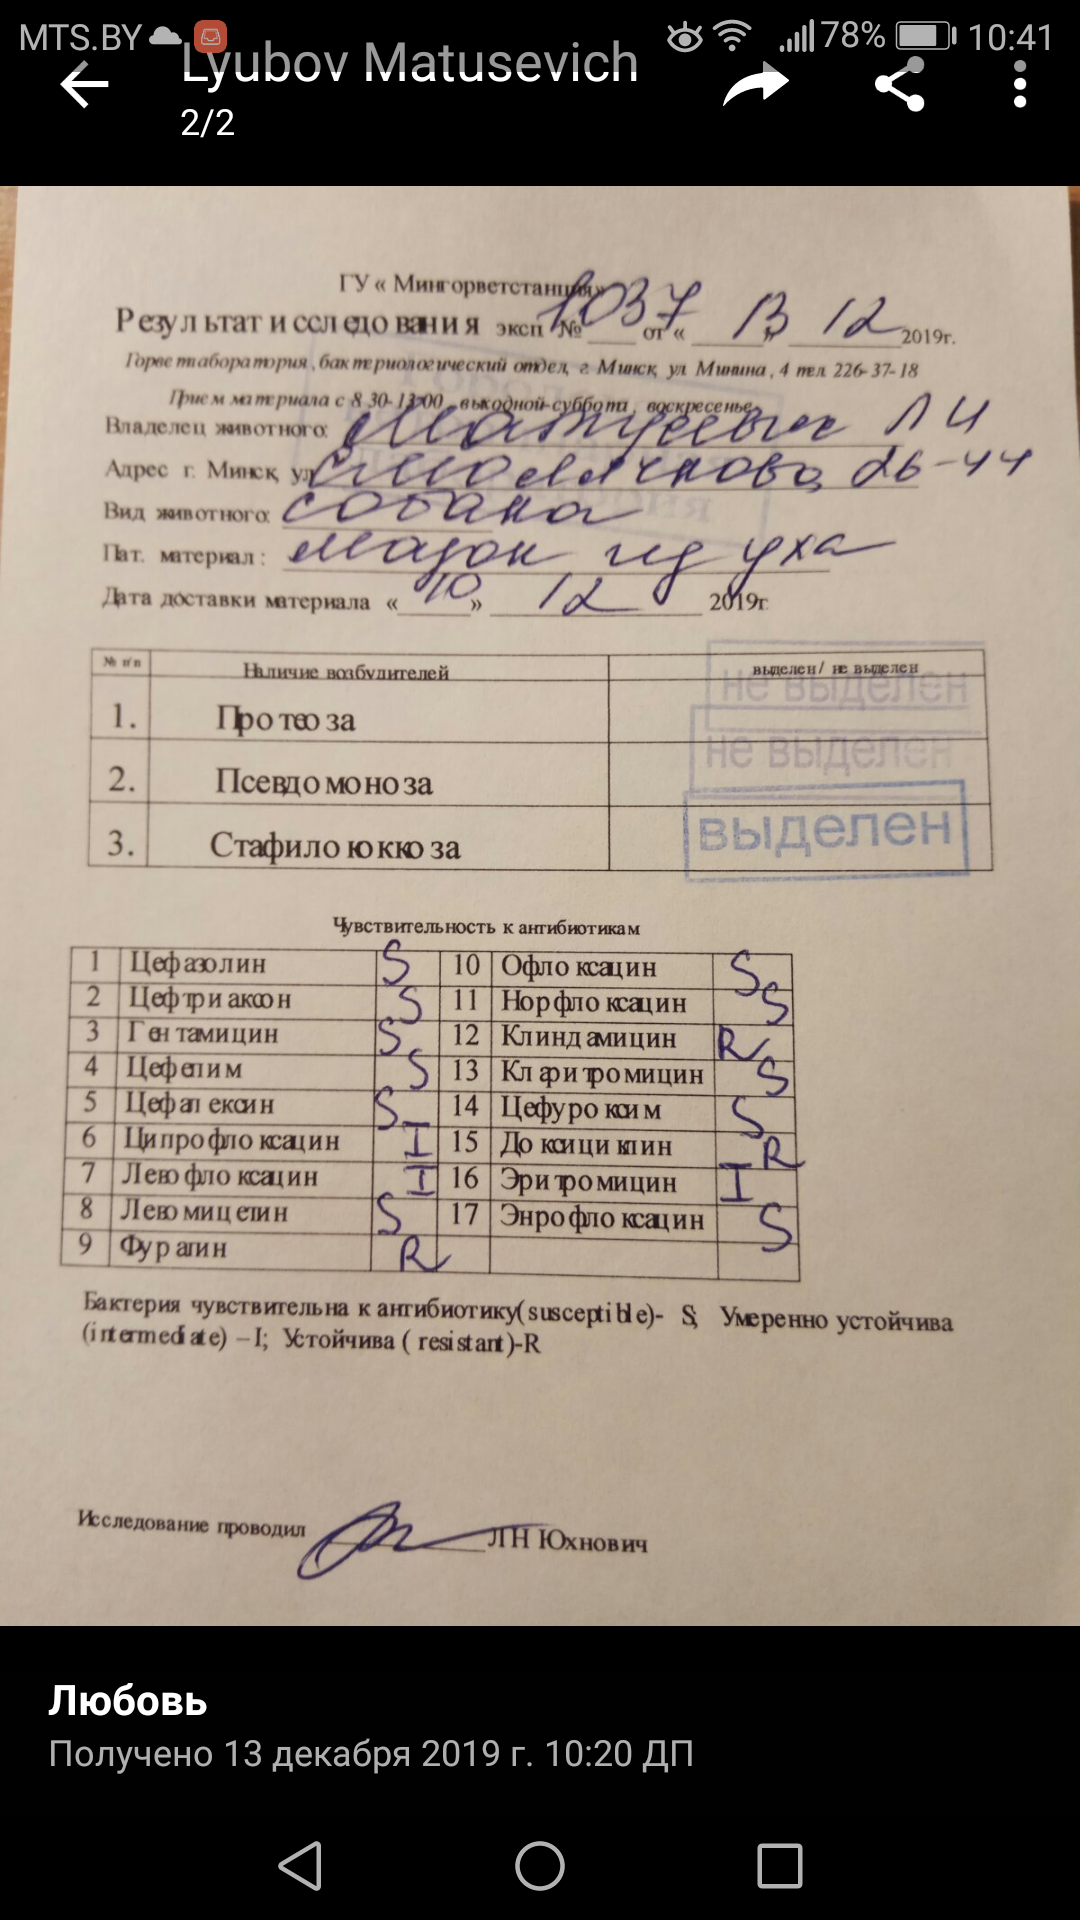 MTS.BY 78% 10:41
Lyubov Matusevich
2/2
ГУ « Мингорветстанция»
Результат исследования эксп №1037 от « 13 » 12 2019г.
Горветлаборатория, бактериологический отдел, г. Минск, ул. Минина, 4 тел. 226-37-18
Прием материала с 8 30-13-00, выходной-суббота, воскресенье
Владелец животного: Матусевич Л И
Адрес г. Минск, ул Смолячкова 26-44
Вид животного: собака
Пат. материал: Мазок из уха
Дата доставки материала « 10 » 12 2019г.
№ п/п Наличие возбудителей выделен / не выделен
1. Протеоза не выделен
2. Псевдомоноза не выделен
3. Стафилококкоза выделен
Чувствительность к антибиотикам
1 Цефазолин S 10 Офлоксацин S
2 Цефтриаксон S 11 Норфлоксацин S
3 Гентамицин S 12 Клиндамицин R
4 Цефепим S 13 Кларитромицин S
5 Цефалексин S 14 Цефуроксим S
6 Ципрофлоксацин I 15 Доксициклин R
7 Левофлоксацин I 16 Эритромицин I
8 Левомицетин S 17 Энрофлоксацин S
9 Фурагин R
Бактерия чувствительна к антибиотику(susceptible)- S; Умеренно устойчива
(intermediate) – I; Устойчива ( resistant)-R
Исследование проводил ЛН Юхнович
Любовь
Получено 13 декабря 2019 г. 10:20 ДП